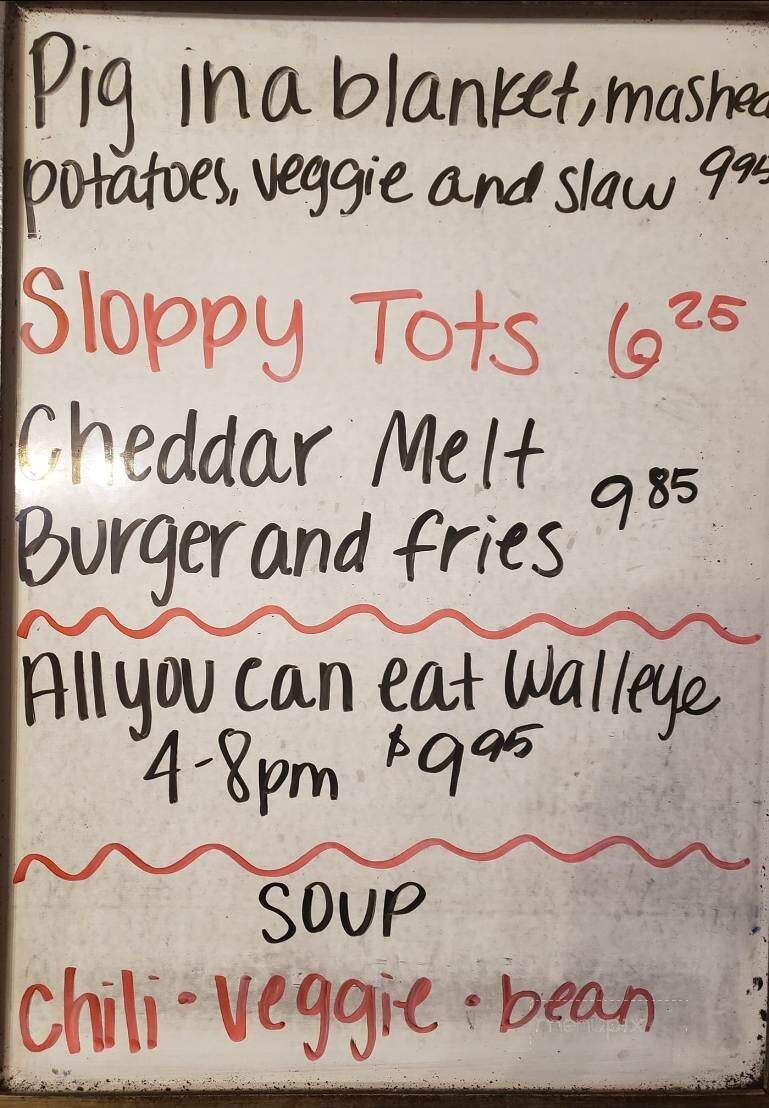 Pig in a blanket, mashed
potatoes, veggie and slaw 995
Sloppy Tots 625
Cheddar Melt
Burger and fries 985
All you can eat Walleye
4-8pm $995
SOUP
chili • veggie • bean
menupix